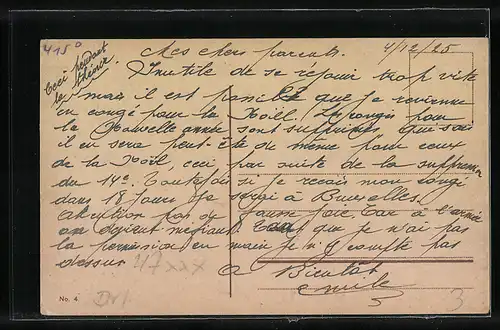 415°
Ceci pendant
le
Mes chers parents. 4/12/25
Inutile de se réjouir trop vite
mais il est possible que je revienne
en congé pour la Noël. Les congés pour
la Nouvelle année sont supprimés. Qui sait
il en sera peut-être de même pour ceux
de la Noël, ceci par suite de la suppression
du 14e. Toutefois si je reçois mon congé
dans 18 jours je serai à Bruxelles.
pas de fausse joie car à l'armée
on devient méfiant. tant que je n'ai pas
la permission en main je n'y compte pas
dessus. 47xxx
A Bientôt
Emile
No. 4
3